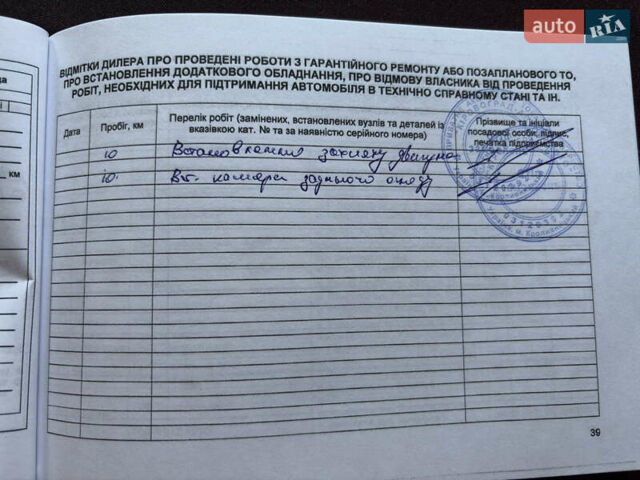 auto RIA
ВІДМІТКИ ДИЛЕРА ПРО ПРОВЕДЕНІ РОБОТИ З ГАРАНТІЙНОГО РЕМОНТУ АБО ПОЗАПЛАНОВОГО ТО,
ПРО ВСТАНОВЛЕННЯ ДОДАТКОВОГО ОБЛАДНАННЯ, ПРО ВІДМОВУ ВЛАСНИКА ВІД ПРОВЕДЕННЯ
РОБІТ, НЕОБХІДНИХ ДЛЯ ПІДТРИМАННЯ АВТОМОБІЛЯ В ТЕХНІЧНО СПРАВНОМУ СТАНІ ТА ІН.
Дата
Пробіг, км
Перелік робіт (замінених, встановлених вузлів та деталей із
вказівкою кат. № та за наявністю серійного номера)
Прізвище та ініціали
посадової особи, підпис,
печатка підприємства
10 Встановлення захисту двигуна
10. Вт. камери заднього огляду
км
39